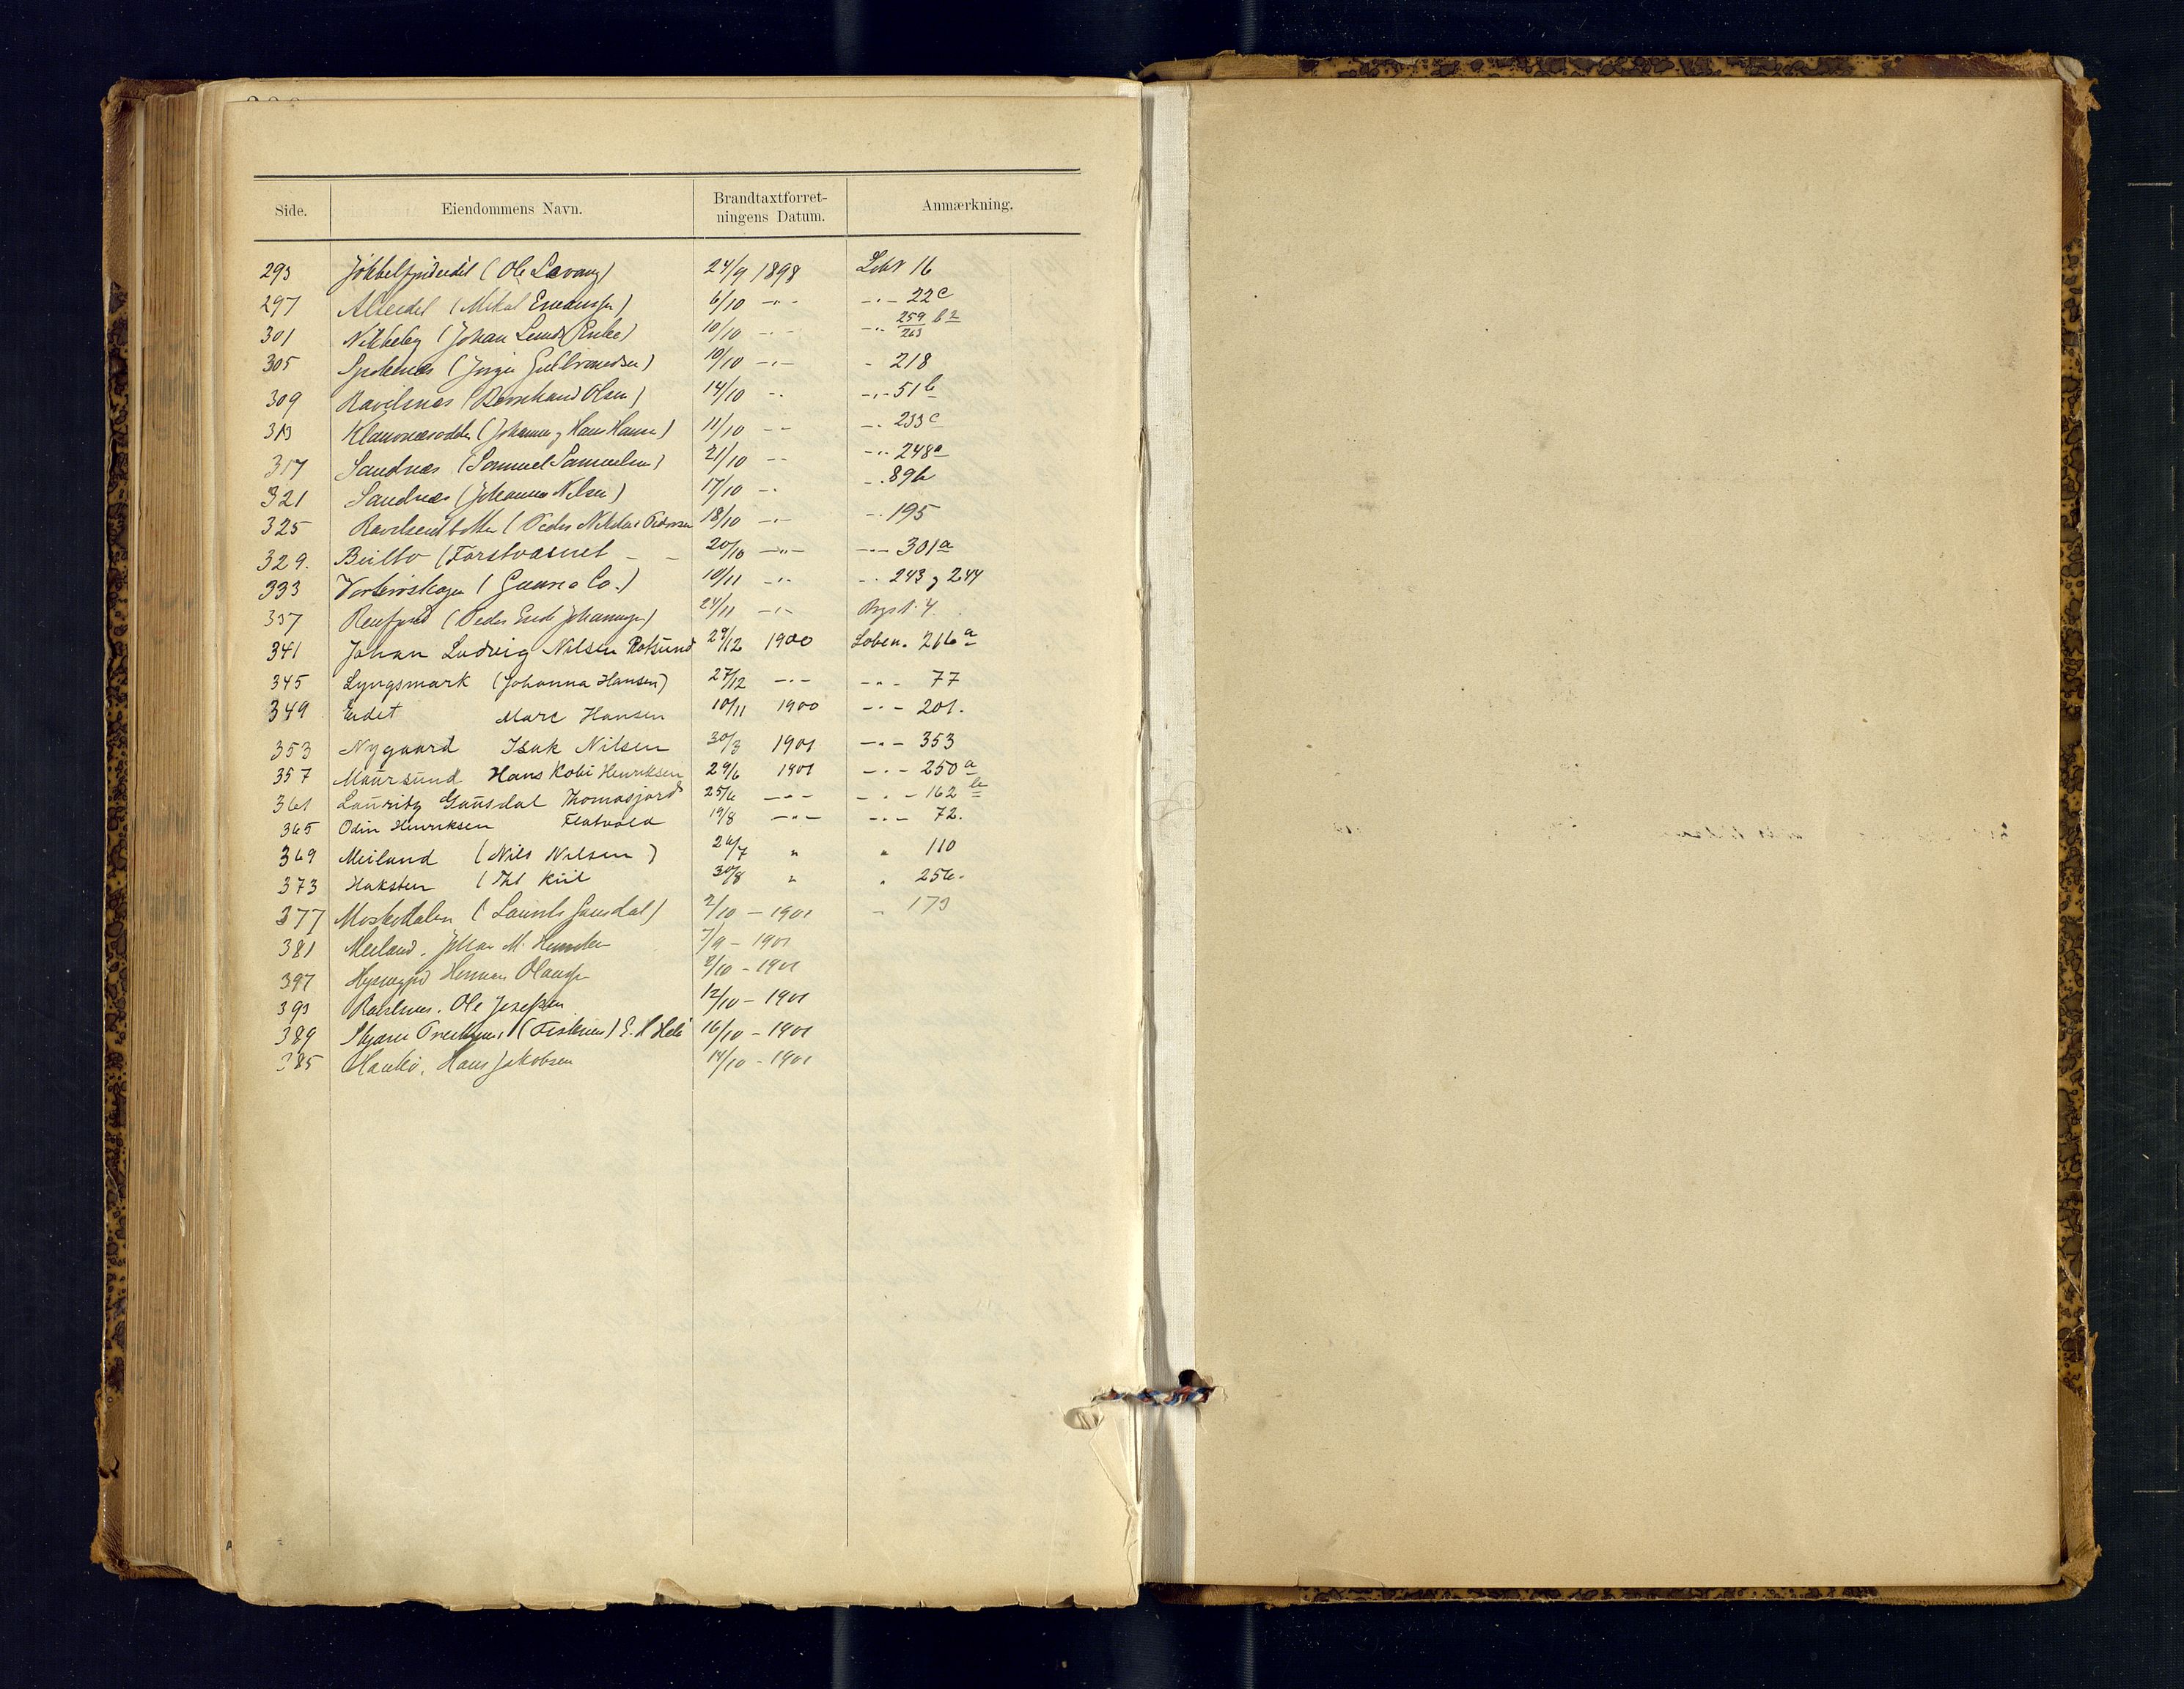 Side. Eiendommens Navn. Brandtaxtforret-ningens Datum. Anmærkning.
293 Jökkelfjordeidet (Ole Lavang) 24/9 1898 Løbn 16
297 Alteidet (Mikal Emanuelsen) 6/10 -"- -"- 22c
301 Nikkeby (Johan Lunds Enke) 10/10 -"- -"- 259/263 b2
305 (Jörgen ) 10/10 -"- - 218
309 Ravelsnæs (Bernhard Olsen) 14/10 -"- -"- 51b
313 Klauvnæsodden (Johannes og Hans Hansen) 11/10 -"- -"- 233c
317 Sandnæs (Samuel Samuelsen) 21/10 -"- -"- 248a
321 Sandnæs (Johannes Nilsen) 17/10 -"- -"- 89b
325 (Peder Nikolai Pedersen 18/10 -"- -"- 195
329. Bilto (Forstvæsnet - - 20/10 -"- -"- 301a
333 (Co.) 10/11 -"- -"- 243 og 244
337 (Peder Johannesen) 24/11 -"- 4.
341 Johan Ludvig Nilsen Rotsund 29/12 1900 Løben. 216a
345 Lyngsmark (Johanna Hansen) 27/12 -"- -"- 77
349 Eidet Marc Hansen 10/11 1900 -"- 201.
353 Nygaard Isak Nilsen 30/3 1901 -"- 353
357 Maursund Hans Kobi Henriksen 29/6 1901 -"- 250a
361 Lauritz Gausdal Thomasjord 25/6 -"- -"- 162b
365 Odin Henriksen Flatvold 19/8 -"- -"- 72.
369 Meiland (Nils Nilsen) 26/7 " " 110
373 Haksten (Thl Kiil 30/8 " " 256.
377 Moskodalen (Laurits Gausdal) 2/10 - 1901 - 173
381 Meiland. Johan M. Henriksen 7/9 - 1901
397 Olaussen 2/10 - 1901
393 Ole Josefsen 12/10 - 1901
389 16/10 - 1901
385 Haukø, Hans Jakobsen 14/10 - 1901